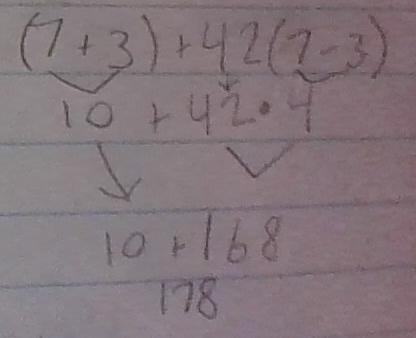 (7+3)+42(7-3)
10 + 42•4
10 + 168
178